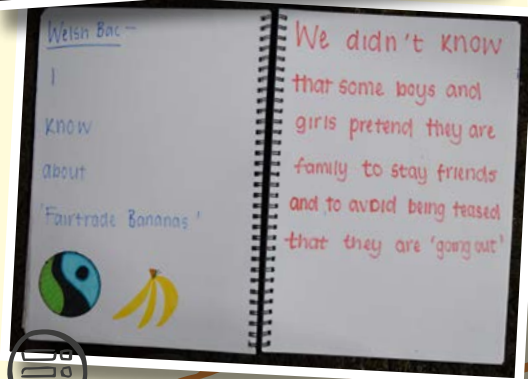 Welsh Bac –
I
know
about
'Fairtrade Bananas'
We didn't know
that some boys and
girls pretend they are
family to stay friends
and to avoid being teased
that they are 'going out'